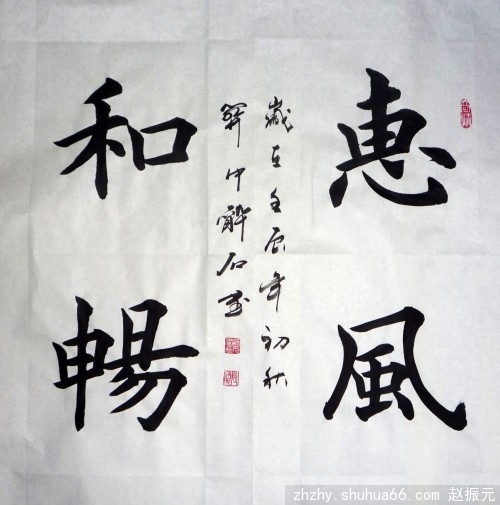 惠風
和暢
歲在壬辰年初秋
zhzhy.shuhua66.com 赵振元